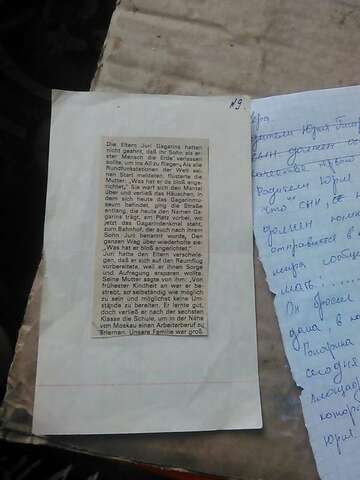 N9.
Die Eltern Juri Gagarins hatten
nicht geahnt, daß ihr Sohn als er-
ster Mensch die Erde verlassen
sollte, um ins All zu fliegen. Als alle
Rundfunkstationen der Welt sei-
nen Start meldeten, flüsterte die
Mutter: „Was hat er da bloß ange-
richtet!" Sie warf sich den Mantel
über und verließ das Häuschen, in
dem sich heute das Gagarinmu-
seum befindet, ging die Straße
entlang, die heute den Namen Ga-
garins trägt, am Platz vorbei, wo
jetzt das Gagarindenkmal steht,
zum Bahnhof, der auch nach ihrem
Sohn Juri benannt wurde. Den
ganzen Weg über wiederholte sie:
„Was hat er bloß angerichtet!"
Juri hatte den Eltern verschwie-
gen, daß er sich auf den Raumflug
vorbereitete, weil er ihnen Sorge
und Aufregung ersparen wollte.
Seine Mutter sagte von ihm: „Von
frühester Kindheit an war er be-
strebt, so selbständig wie möglich
zu sein und möglichst keine Um-
stände zu bereiten. Er lernte gut,
doch verließ er nach der sechsten
Klasse die Schule, um in der Nähe
von Moskau einen Arbeiterberuf zu
erlernen. Unsere Familie war groß,
Юрия
сын должен
родители Юрия
что сын, с
должен
отправился в
мира сообще
мать
Он бросил
дата, в ко
Гагарина
сегодня
площадь
котор
Юрия.